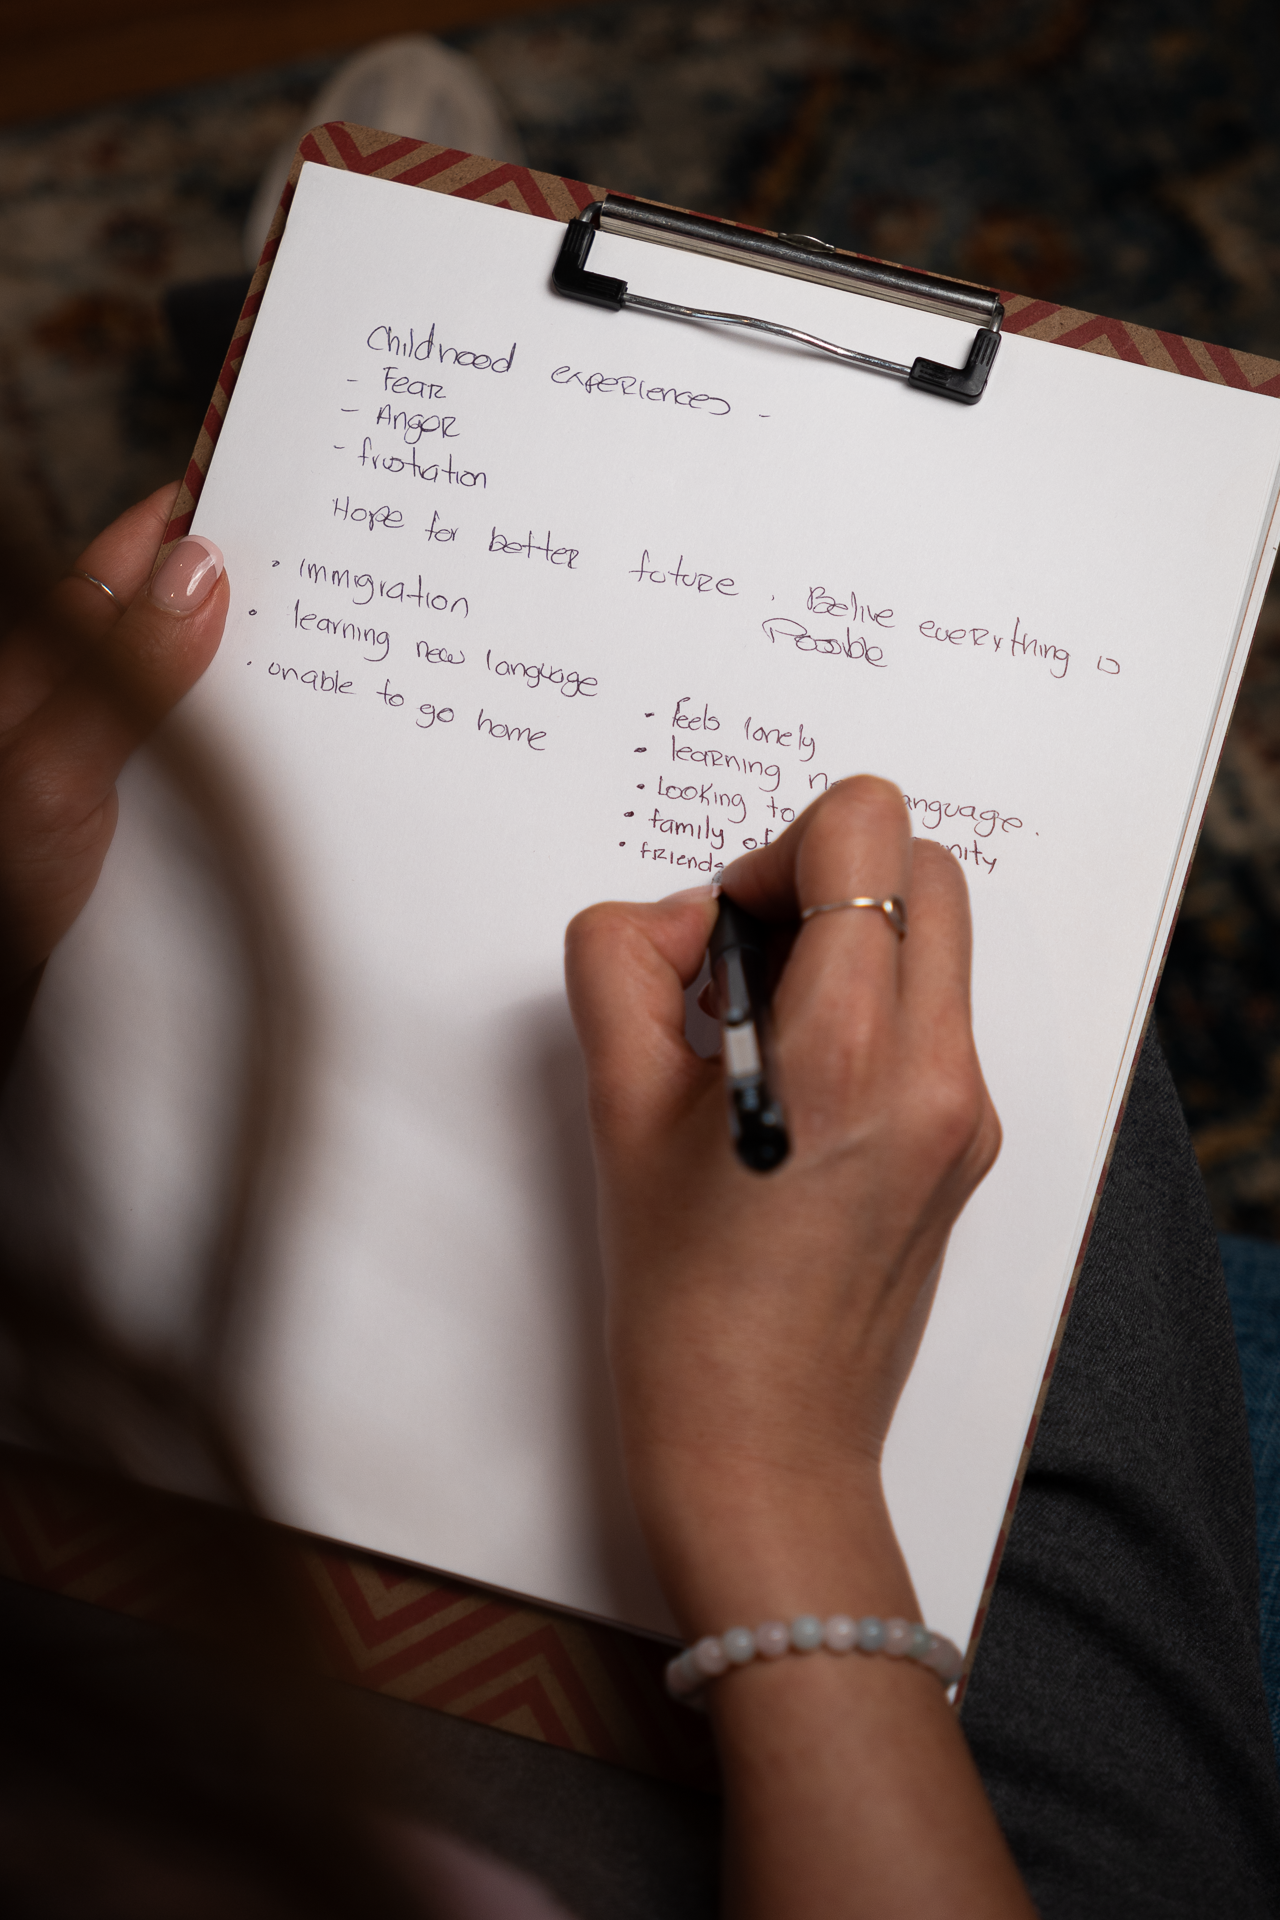 Childhood experiences -
- Fear
- Anger
- frustration
Hope for better future. Belive everything is
Possible
• immigration
• learning new language
• unable to go home
• feels lonely
• learning language.
• Looking to
• family of
• friends